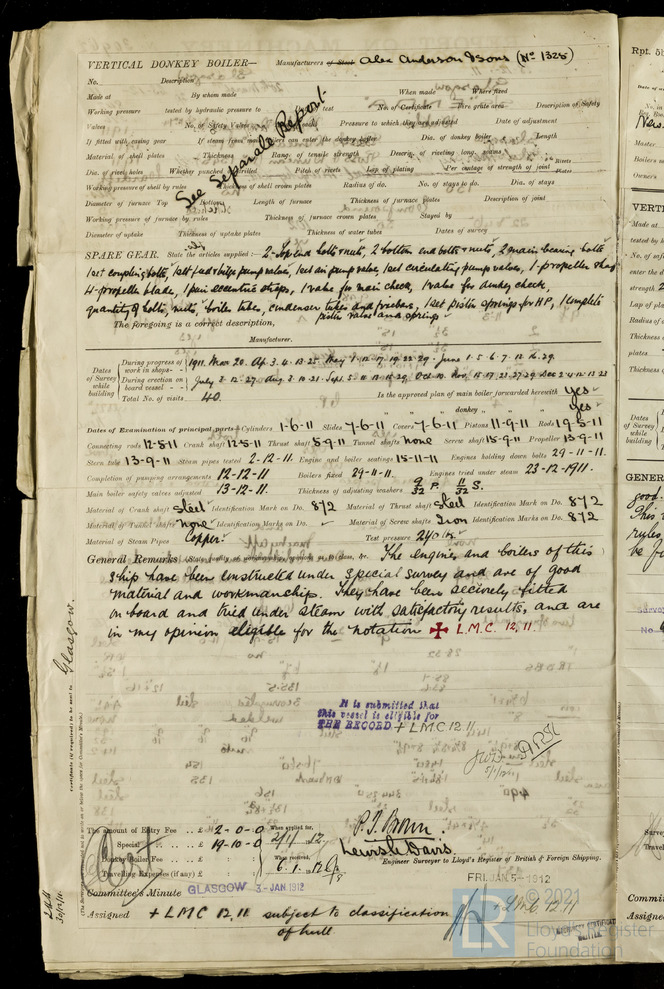 VERTICAL DONKEY BOILER— Manufacturers of Steel Alex Anderson & Sons (No 1328)
No. Description
Made at By whom made When made Where fixed
Working pressure tested by hydraulic pressure to test No. of Certificate Fire grate area Description of Safety
Valves No. of Safety Valves Pressure to which they are adjusted Date of adjustment
If fitted with casing gear If steam from main boilers can enter the donkey boiler Dia. of donkey boiler Length
Material of shell plates Thickness Range of tensile strength Descrip. of riveting long. seams
Dia. of rivet holes Whether punched or drilled Pitch of rivets Lap of plating Per centage of strength of joint Rivets Plates
Working pressure of shell by rules Thickness of shell crown plates Radius of do. No. of stays to do. Dia. of stays
Diameter of furnace Top Bottom Length of furnace Thickness of furnace plates Description of joint
Working pressure of furnace by rules Thickness of furnace crown plates Stayed by
Diameter of uptake Thickness of uptake plates Thickness of water tubes Dates of survey
See Separate Report
SPARE GEAR. State the articles supplied:— 2 top end bolts & nuts, 2 bottom end bolts & nuts, 2 main bearing bolts
1 set coupling bolts, 1 set feed & bilge pump valves, 1 set air pump valves, 1 set circulating pump valves, 1 propeller shaft
4 propeller blades, 1 pair eccentric straps, 1 valve for main check, 1 valve for donkey check,
quantity of bolts, nuts, boiler tubes, condenser tubes and firebars, 1 set piston springs for HP, 1 complete
piston valve and springs
The foregoing is a correct description,
Manufacturer.
Dates of Survey while building
During progress of work in shops - - 1911. Mar 20. Ap. 3. 4. 13. 25. May 1. 12. 17. 19. 22. 29. June 1. 5. 6. 7. 12. 16. 29.
During erection on board vessel - - July 3. 12. 27. Aug. 3. 10. 21. Sept. 5. 11. 13. 15. 29. Oct. 19. Nov. 15. 17. 21. 27. 29. Dec. 2. 4. 12. 13. 23
Total No. of visits 40. Is the approved plan of main boiler forwarded herewith Yes
" " " donkey " " " Yes
Dates of Examination of principal parts—Cylinders 1-6-11 Slides 7-6-11 Covers 7-6-11 Pistons 11-9-11 Rods 19-5-11
Connecting rods 12-5-11 Crank shaft 12-5-11 Thrust shaft 5-9-11 Tunnel shafts none Screw shaft 15-9-11 Propeller 13-9-11
Stern tube 13-9-11 Steam pipes tested 2-12-11. Engine and boiler seatings 15-11-11 Engines holding down bolts 29-11-11.
Completion of pumping arrangements 12-12-11 Boilers fixed 29-11-11. Engines tried under steam 23-12-1911.
Main boiler safety valves adjusted 13-12-11. Thickness of adjusting washers 9/32 P. 11/32 S.
Material of Crank shaft Steel Identification Mark on Do. 872 Material of Thrust shaft Steel Identification Mark on Do. 872
Material of Tunnel shafts none Identification Marks on Do. Material of Screw shafts Iron Identification Marks on Do. 872
Material of Steam Pipes Copper. Test pressure 240 lbs.
General Remarks The engines and boilers of this
ship have been constructed under special survey and are of good
material and workmanship. They have been securely fitted
on board and tried under steam with satisfactory results, and are
in my opinion eligible for the notation ✠ L.M.C. 12.11
It is submitted that
this vessel is eligible for
THE RECORD + LMC 12.11
5/1/12
Glasgow.
Certificate (if required) to be sent to
The amount of Entry Fee .. £ 2-0-0 When applied for,
Special .. £ 19-10-0 2/1/12
Donkey Boiler Fee .. £ : : When received,
Travelling Expenses (if any) £ : : 6.1.12
P. T. Brown.
Lewis Davis.
Engineer Surveyor to Lloyd's Register of British & Foreign Shipping.
Committee's Minute GLASGOW 3-JAN 1912 FRI. JAN 5-1912
Assigned + LMC 12.11 subject to classification + LMC 12.11
of hull
© 2021
LR
Lloyd's Register
Foundation
Rpt. 5
VERTI
GENER
good.
This
rules,
be fu
Commit
Assigned